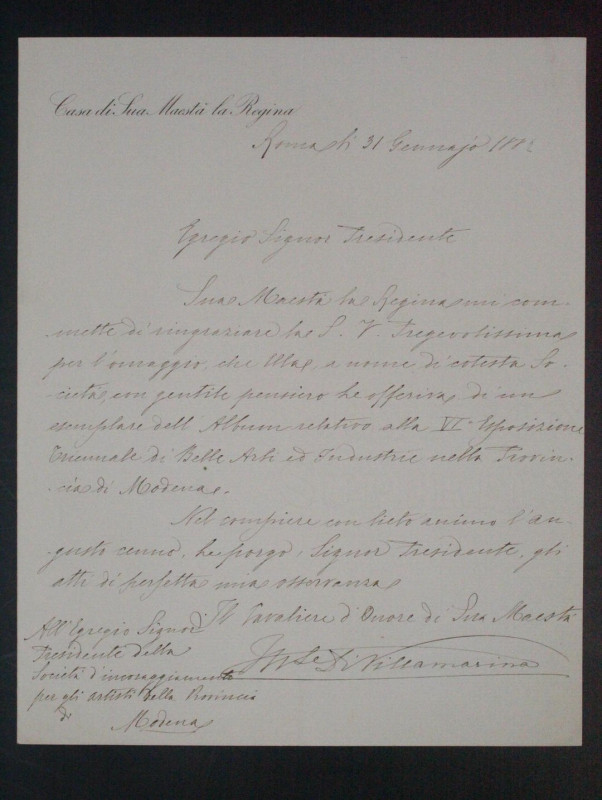 Casa di Sua Maestà la Regina
Roma li 31 Gennajo
Egregio Signor Presidente
Sua Maestà la Regina mi com-
mette di ringraziare la S. V. Pregevolissima
per l'omaggio, che Ella, a nome di cotesta So-
cietà, con gentile pensiero le offeriva, di un
esemplare dell'Album relativo alla VIª Esposizione
Triennale di Belle Arti ed Industrie nella Provin-
cia di Modena.
Nel compiere con lieto animo l'au-
gusto cenno, le porgo, Signor Presidente, gli
atti di perfetta mia osservanza
Il Cavaliere d'Onore di Sua Maestà
Di Villamarina
All'Egregio Signor
Presidente della
Società d'incoraggiamento
per gli artisti della Provincia
di
Modena